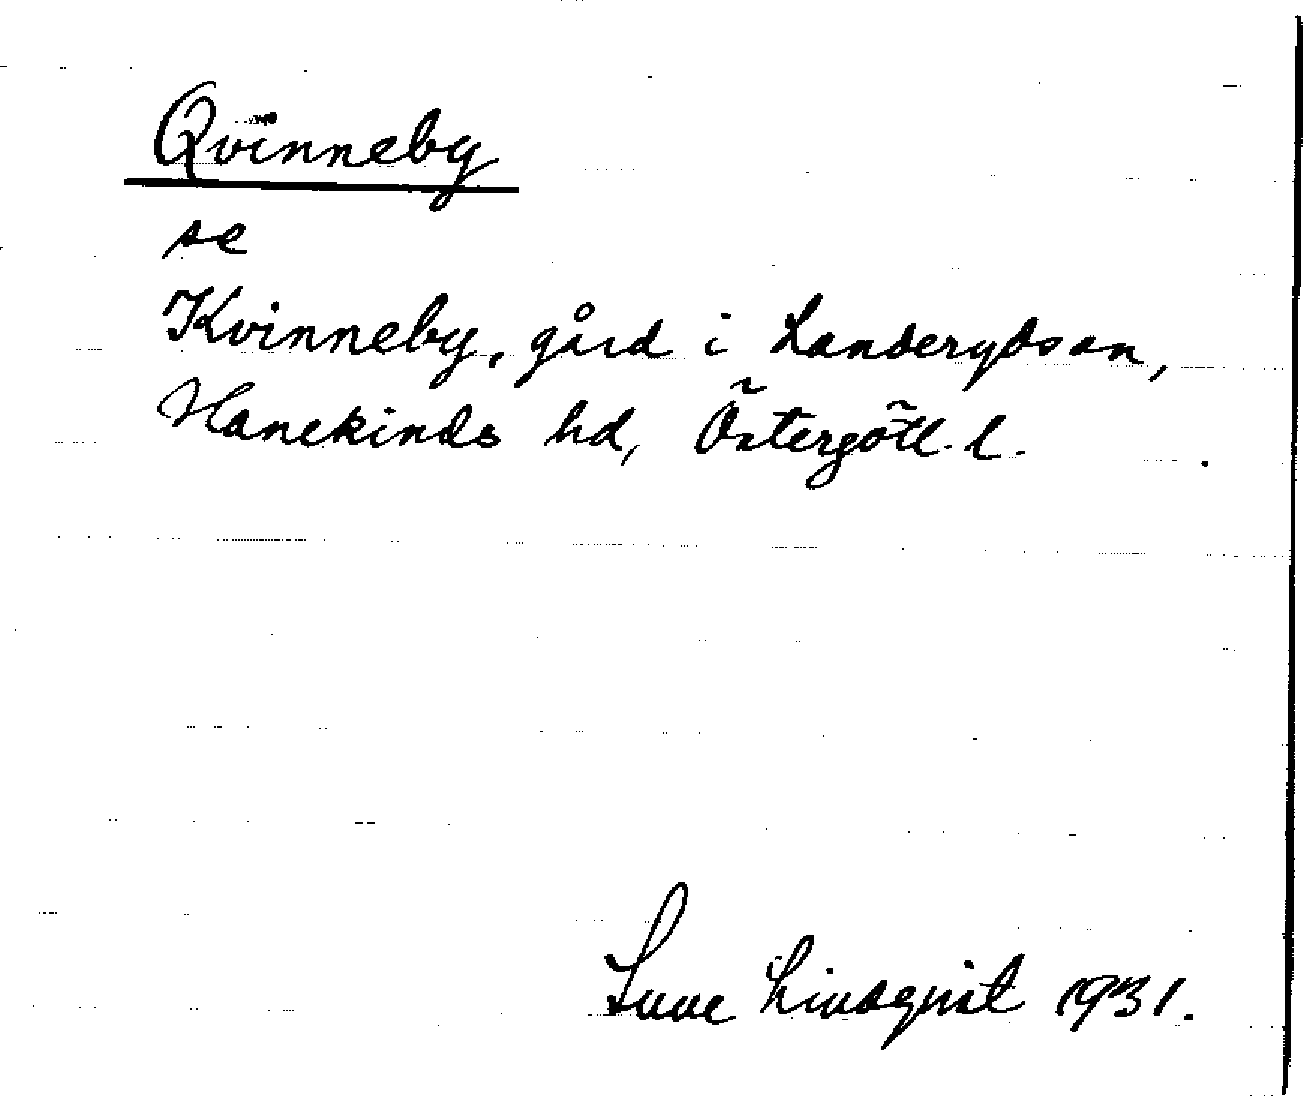 Qvinneby
se
Kvinneby, gård i Landerydsan,
Hanekinds hd, Östergötl. l.
Sune Lindqvist 1931.